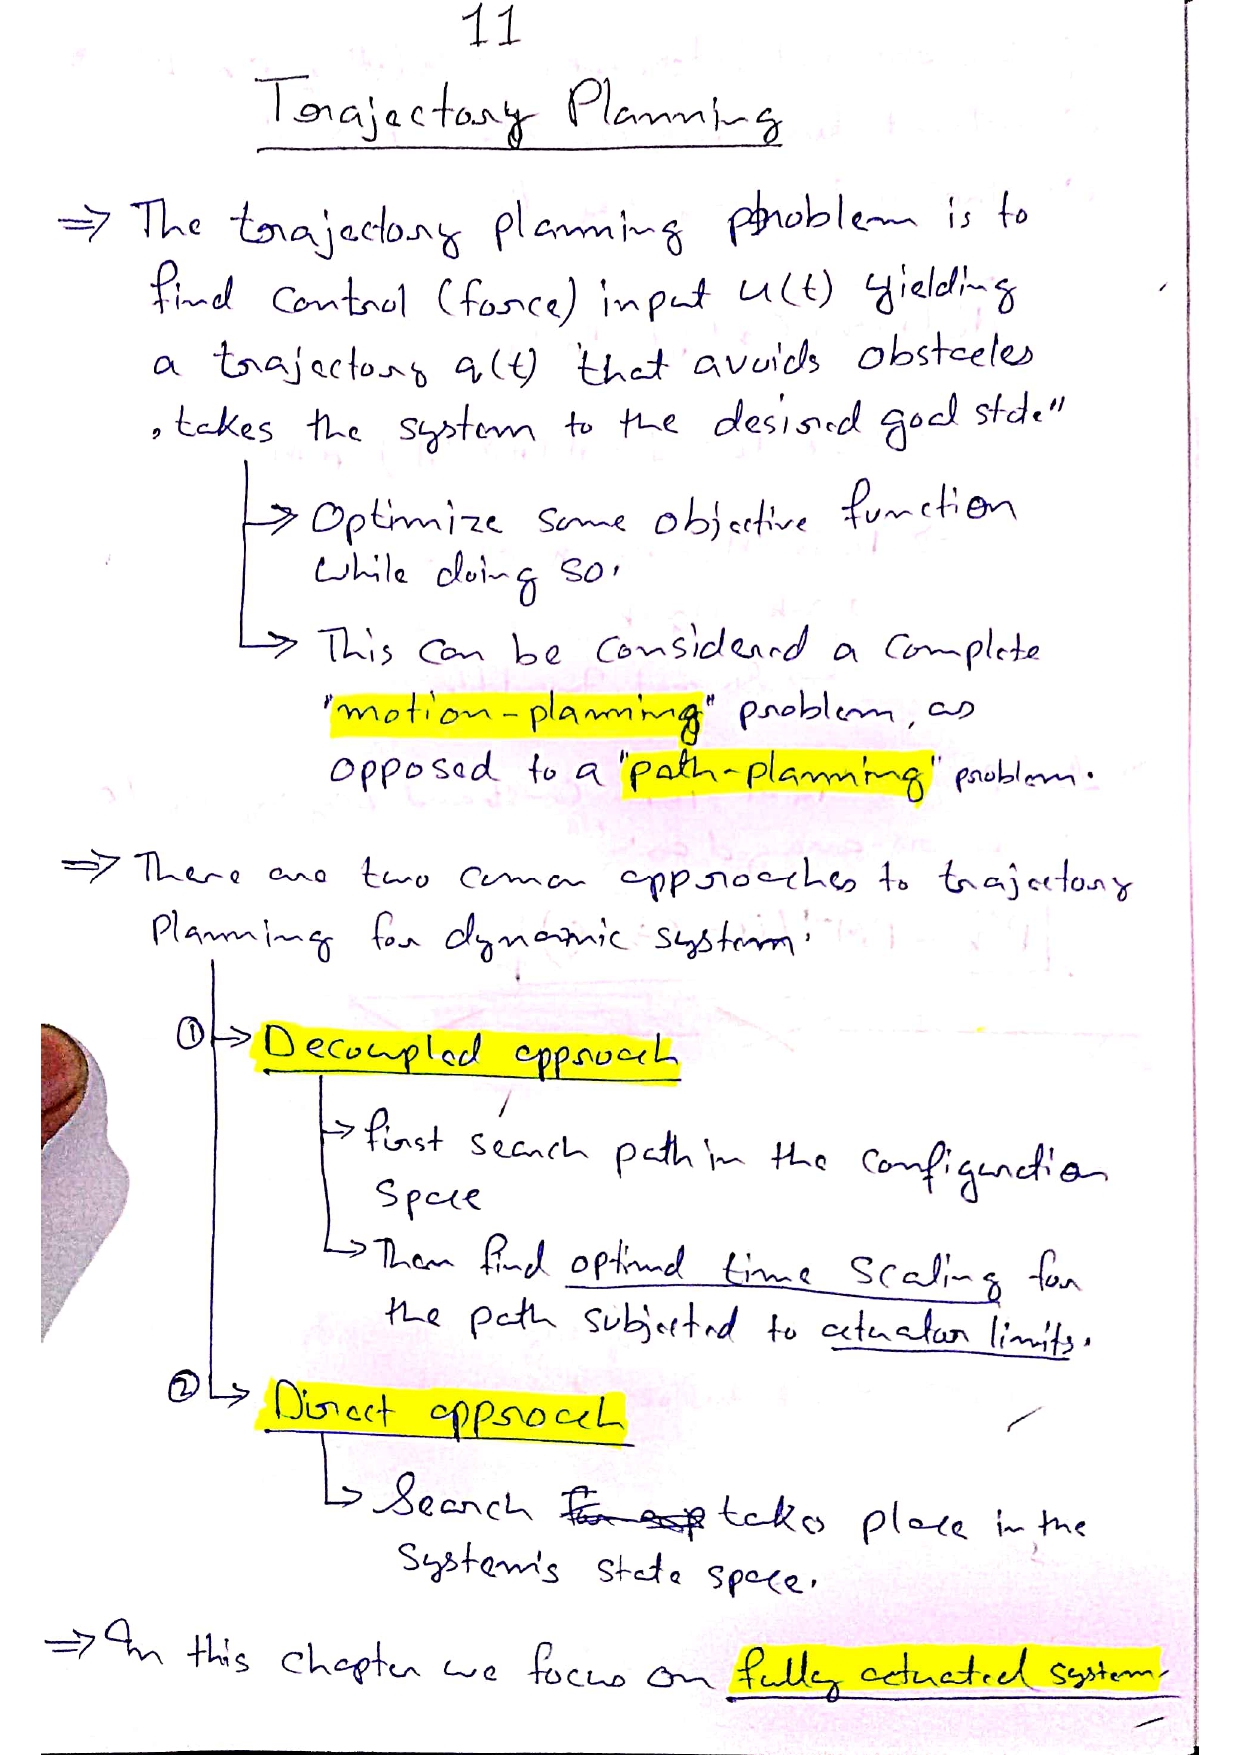 11
Trajectory Planning
⇒ The trajectory planning problem is to
find control (force) input u(t) yielding
a trajectory q(t) that avoids obstacles
, takes the system to the desired goal state"
→ Optimize some objective function
while doing so.
→ This can be considered a complete
"motion-planning" problem, as
opposed to a "path-planning" problem.
⇒ There are two comon approaches to trajectory
Planning for dynamic system:
① → Decoupled approach
→ first search path in the configuration
space
→ Then find optimal time scaling for
the path subjected to actuator limits.
② → Direct approach
→ Search takes place in the
system's state space.
⇒ In this chapter we focus on fully actuated system.